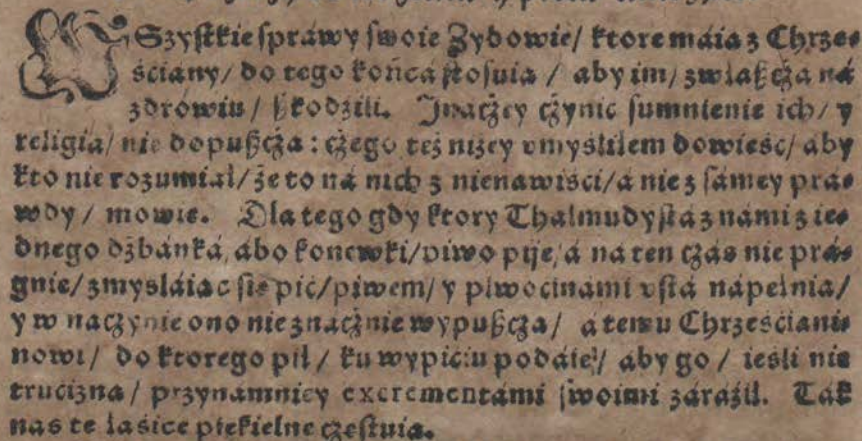 WSzystkie sprawy swoie Zydowie/ ktore maia z Chrze⸗
ściany/ do tego końca stosuia / aby im/ zwłaßcża ná
zdrowiu / ßkodzili. Inacżey cżynić sumnienie ich/ y
religia/ nie dopußcża : cżego też niżey vmyśliłem dowieść/ aby
kto nie rozumiał/ że to ná nich z nienawiści/ á nie z sámey pra⸗
wdy / mowię. Dla tego gdy ktory Thalmudysta z námi z ie⸗
dnego dżbanká, ábo konewki/ piwo pije, á na ten cżás nie prá⸗
gnie/ zmysláiac się pić/ piwem/ y plwocinami vstá nápełnia/
y w nacżynie ono nieznacżnie wypußcża/ á temu Chrześciani⸗
nowi/ do ktorego pił/ ku wypiciu podáie/ áby go / iesli nie
trucizna / przynamniey excrementámi swoimi záráźił. Ták
nas te łásice piekielne cżestuia.